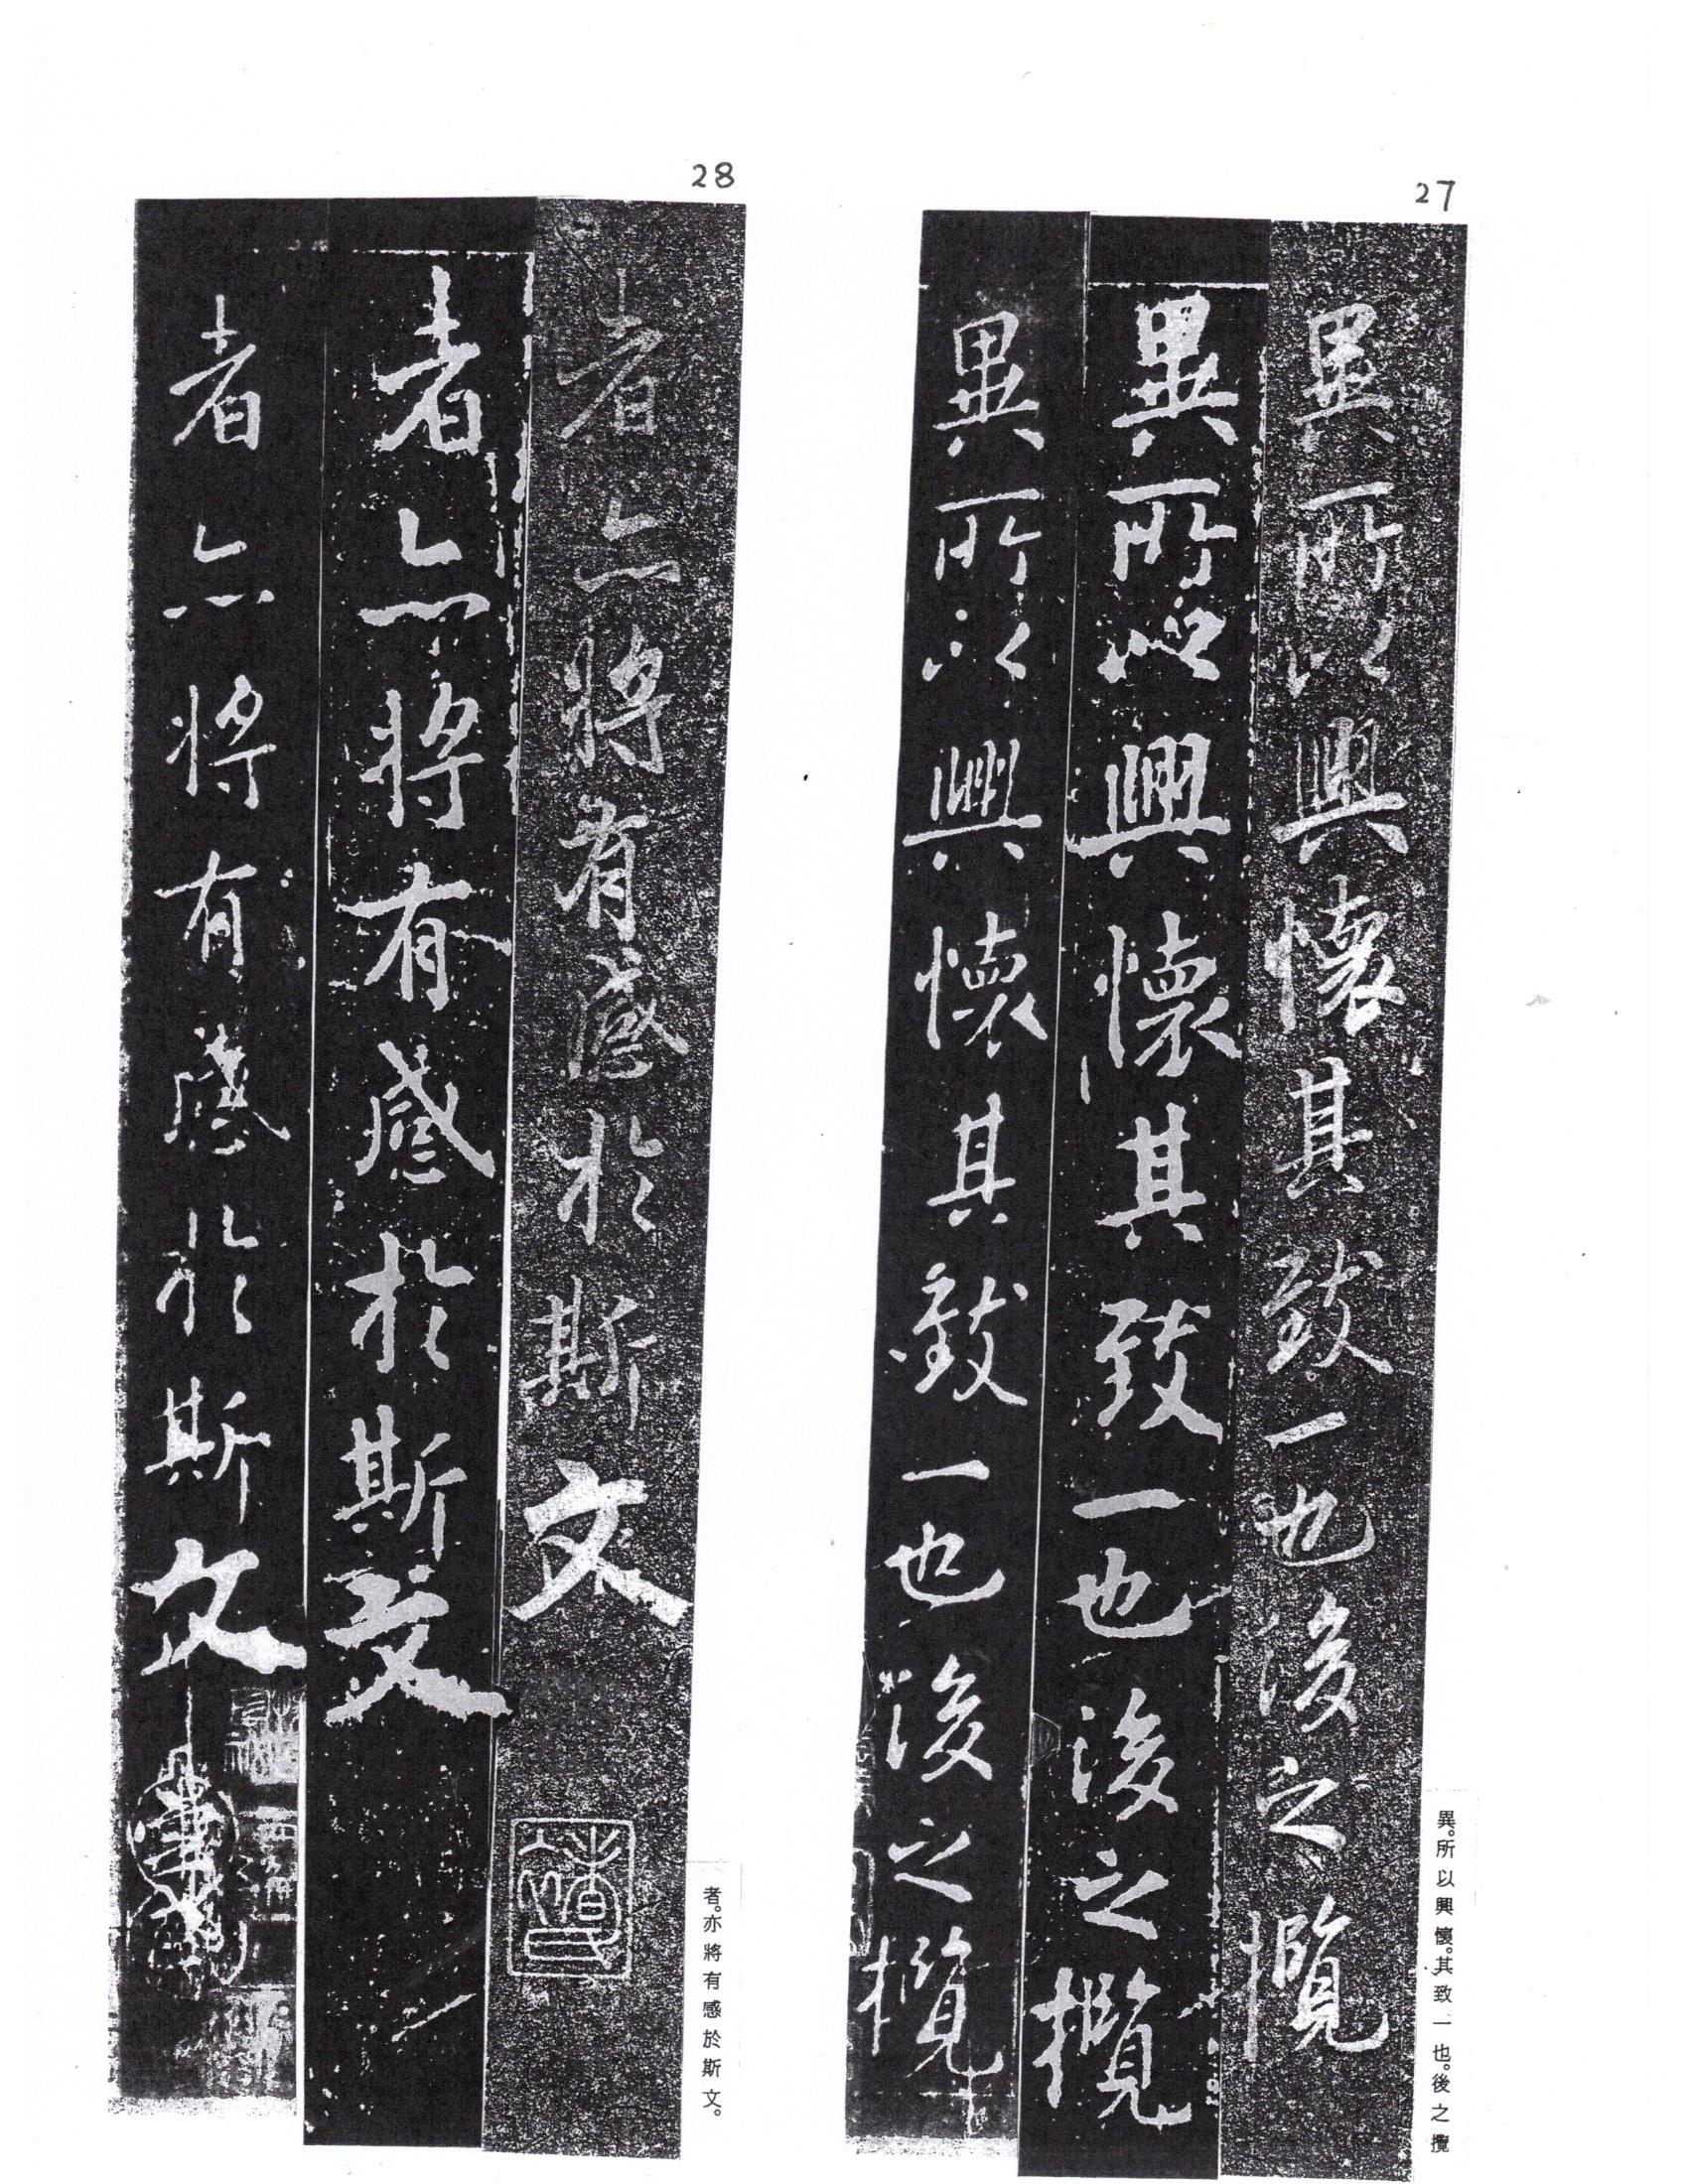 27
異所以興懷其致一也後之攬
異所以興懷其致一也後之攬
異所以興懷其致一也後之攬
異。所以興懷。其致一也。後之攬
28
者亦將有感於斯文
者亦將有感於斯文
者亦將有感於斯文
者。亦將有感於斯文。